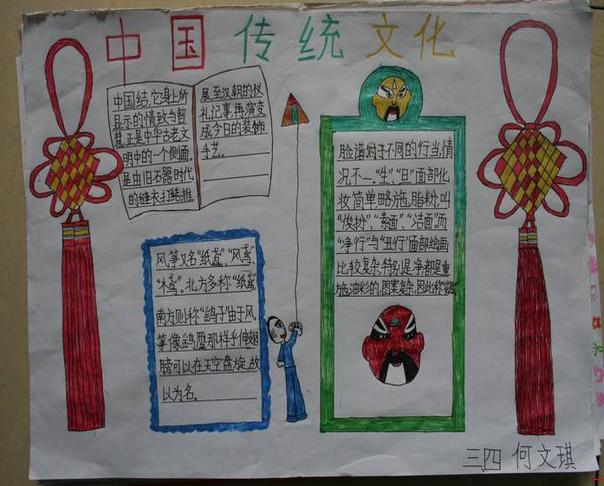 中国传统文化
中国结,它身上所
显示的情致与智
慧正是中华古老文
明中的一个侧面
是由旧石器时代
的缝衣打结,推
展至汉朝的仪
礼记事,再演变
成今日的装饰
手艺.
风筝又名"纸鸢","风鸢,
"木鸢".北方多称"纸鸢"
南方则称"鹞子"由于风
筝像鹞鹰那样平伸翅
膀可以在天空盘旋,故
以为名.
脸谱对于不同的行当,情
况不一."生","旦"面部化
妆简单略施脂粉,叫
"俊扮","素面","洁面".而
"净行"与"丑行"面部绘画
比较复杂,特别是净都是重
施油彩的,图案复杂,因此称
三四 何文琪